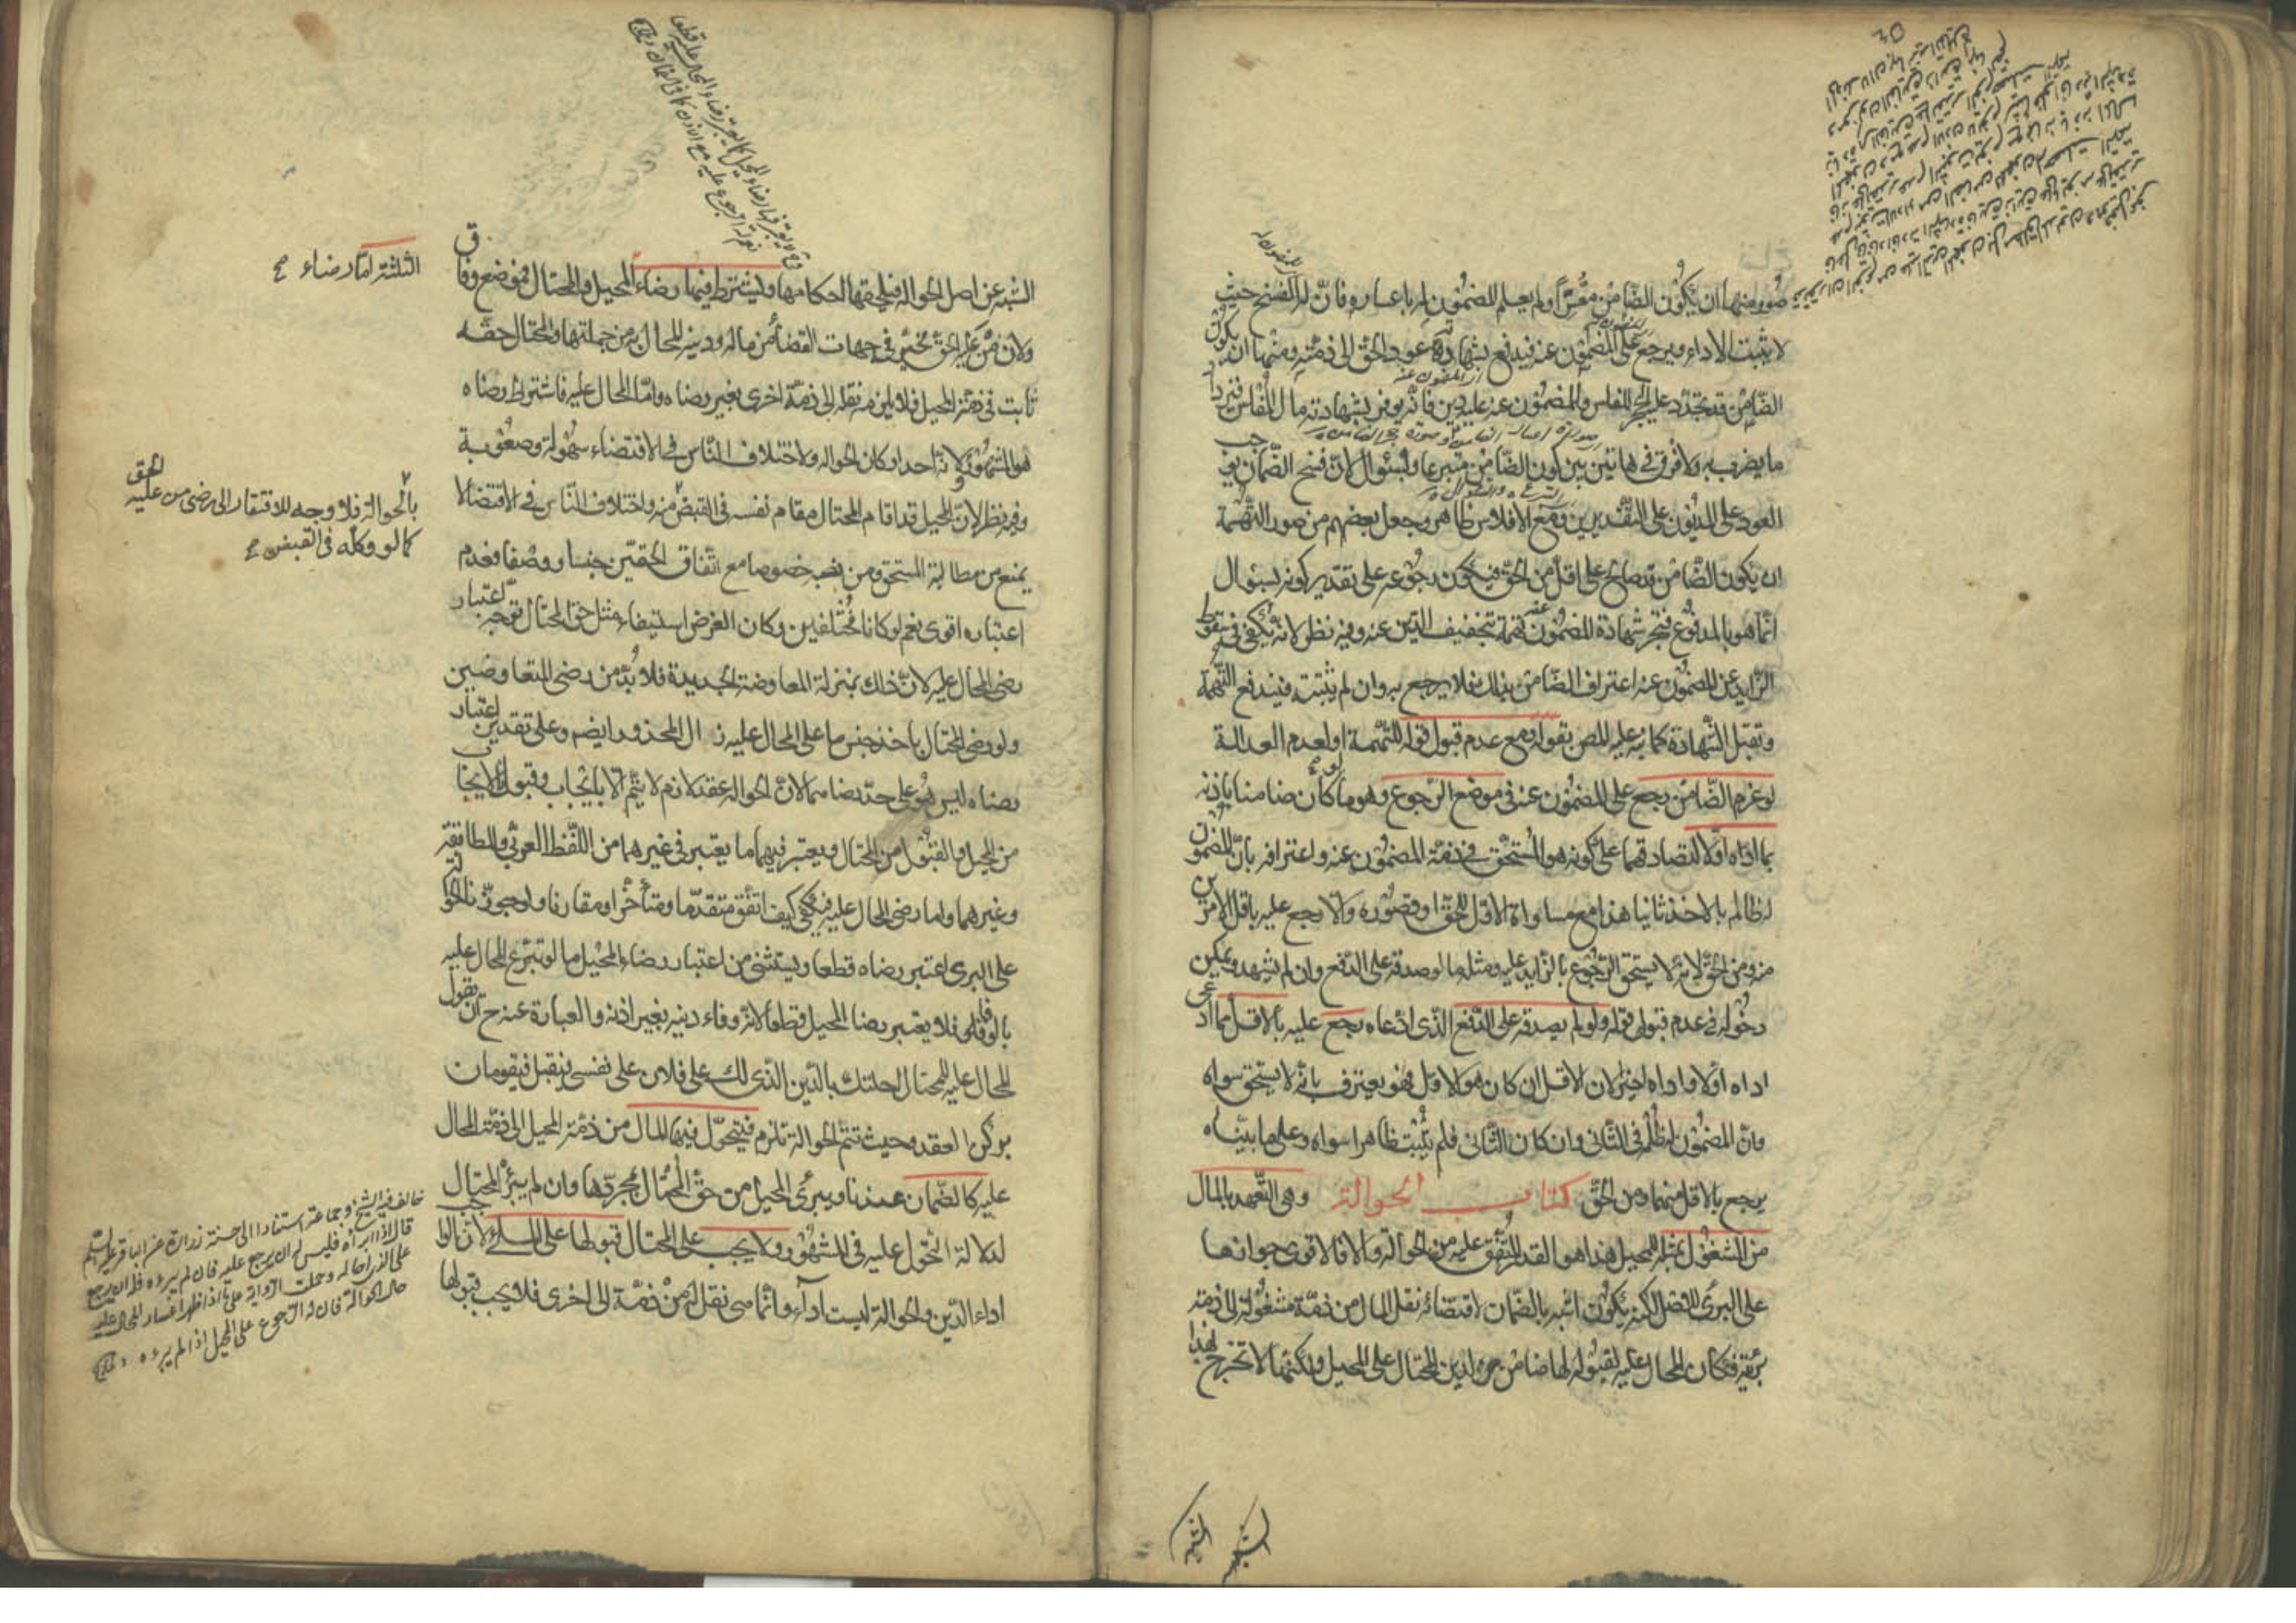 صور منها ان يكون الضامن معسرا ولم يعلم المضمون له باعساره فان له الفسخ حيث
لا يثبت الاداء ويرجع على المضمون عنه فيدفع بشهادته عود الحق الى ذمته ومنها ان يكون
الضامن قد تجدد عليه الحجر للفلس والمضمون عنه عليه دين فانه يوفر بشهادته مال المفلس فيزداد
ما يضرب به ولا فرق في هاتين بين كون الضامن متبرعا وبسئوال لان فسخ الضمان يوجب
العود على المديون على التقديرين ومع الافلاس ظاهر وجعل بعضهم من صور التهمة
ان يكون الضامن قد صالح على اقل من الحق فيكون رجوعه على تقدير كونه بسئوال
انما هو بالمدفوع فتجر شهادة المضمون عنه تهمة بتخفيف الدين عنه وفيه نظر لانه يكفي في سقوط
الزايد عن المضمون عنه اعتراف الضامن بذلك فلا يرجع به وان لم يثبت فيندفع التهمة
وتقبل الشهادة كما نبه عليه المص بقوله ومع عدم قبول قوله للتهمة او لعدم العدالة
لو غرم الضامن رجع على المضمون عنه في موضع الرجوع وهو ما لو كان ضامنا باذنه
بما اداه اولا لتصادقهما على كونه هو المستحق في ذمة المضمون عنه واعترافه بان المضمون
له ظالم بالاخذ ثانيا هذا مع مساواة الاول للحق او قصوره والا رجع عليه باقل الامرين
منه ومن الحق لانه لا يستحق الرجوع بالزايد عليه ومثله ما لو صدقه على الدفع وان لم يشهد ويمكن
دخوله في عدم قبول قوله ولو لم يصدقه على الدفع الذى ادعاه رجع عليه بالاقل مما ادعى
اداه اولا واداه اخيرا لان الاقل ان كان هو الاول فهو يعترف بانه لا يستحق سواه
وان المضمون له ظلمه في الثاني وان كان الثانى فلم يثبت ظاهرا سواه وعلى ما بيناه
يرجع بالاقل منهما ومن الحق كتاب الحوالة وهى التعهد بالمال
من المشغول بمثله للمحيل هذا هو القدر المتفق عليه من الحوالة والا فالاقوى جوازها
على البرئ للاصل لكنه يكون اشبه بالضمان لاقتضائه نقل المال من ذمة مشغولة الى ذمة
بريئة فكان المحال عليه بقبوله لها ضامن لدين المحتال على المحيل ولكنها لا تخرج لهذا
الشبه عن اصل الحوالة فيلحقها احكامها ويشترط فيها رضاء المحيل والمحتال فموضع وفاق
الثلثة اما رضاء صح
ولان من عليه الحق مخير في جهات القضاء من ماله ودينه المحال به من جملتها والمحتال حقه
ثابت في ذمة المحيل فلا يلزمه نقله الى ذمة اخرى بغير رضاه واما المحال عليه فاشتراط رضاه
هو المشهور ولانه احد اركان الحوالة ولاختلاف الناس في الاقتضاء سهولة وصعوبة
وفيه نظر لان المحيل قد اقام المحتال مقام نفسه في القبض منه واختلاف الناس في الاقتضاء لا
بالحوالة فلا وجه للافتقار الى رضى من عليه الحق
كما لو وكله في القبض صح
يمنع من مطالبة المستحق ومن نصبه خصوصا مع اتفاق الحقين جنسا ووصفا فعدم
اعتباره اقوى نعم لو كانا مختلفين وكان الغرض استيفاء مثل حق المحتال توجه اعتبار
رضى المحال عليه لان ذلك بمنزلة المعاوضة الجديدة فلا بد من رضى المتعاوضين
ولو رضى المحتال باخذ جنس ما على المحال عليه زال المحذور ايضم وعلى تقدير اعتبار
رضاه ليس هو على حد رضاهما لان الحوالة عقد لازم لا يتم الا بايجاب وقبول فالايجاب
من المحيل والقبول من المحتال ويعتبر فيهما ما يعتبر في غيرهما من اللفظ العربي والمطابقة
وغيرهما واما رضى المحال عليه فيكفي كيف اتفق متقدما ومتأخرا ومقارنا ولو جوزنا الحوالة
على البرى اعتبر رضاه قطعا ويستثنى من اعتبار رضاء المحيل ما لو تبرع المحال عليه
بالوفاء فلا يعتبر رضا المحيل قطعا لانه وفاء دينه بغير اذنه والعبارة عنه ح ان يقول
المحال عليه للمحتال احلتك بالدين الذى لك على فلان على نفسى فيقبل فيقومان
بركن العقد وحيث تتم الحوالة تلزم فيتحول فيها المال من ذمة المحيل الى ذمة المحال
عليه كالضمان عندنا ويبرئ المحيل من حق المحتال بمجردها وان لم يبرئه المحتال
لدلالة التحول عليه في المشهور ولا يجب على المحتال قبولها على الملى لان الواجب
اداء الدين والحوالة ليست اداء وانما هى نقل له من ذمة الى اخرى فلا يجب قبولها
خالف فيه الشيخ وجماعة استنادا الى حسنة زرارة عن الباقر عليه السلم
قال اذا ابرأه فليس له ان يرجع عليه فان لم يبرءه فله ان يرجع
على الذى احاله وحملت الرواية على ما اذا ظهر اعسار المحال عليه
حال الحوالة فان له الرجوع على المحيل اذا لم يبرءه